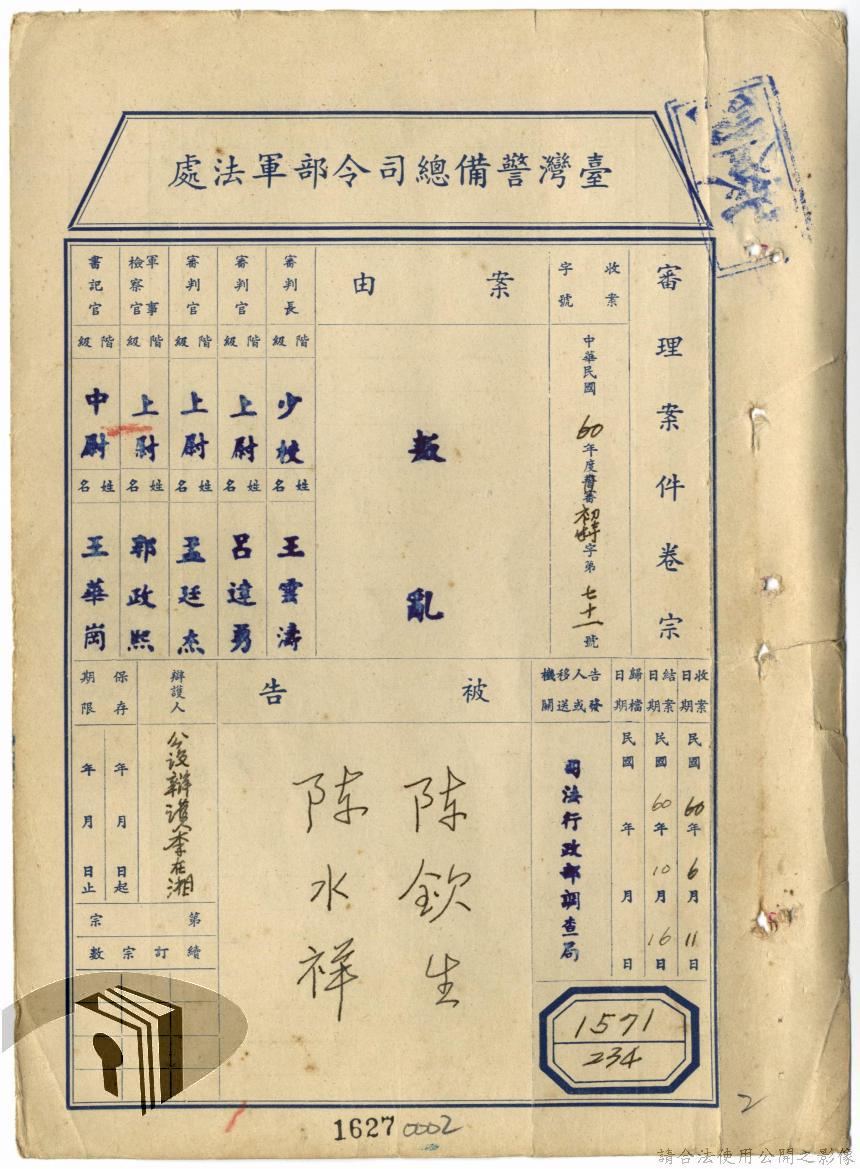 臺灣警備總司令部軍法處
審理案件卷宗
收案字號
中華民國60年度警審初特字第七十一號
案由
叛亂
審判長
階級
少校
姓名
王雲濤
審判官
階級
上尉
姓名
呂達勇
審判官
階級
上尉
姓名
孟廷杰
軍事檢察官
階級
上尉
姓名
郭政熙
書記官
階級
中尉
姓名
王華崗
收案日期
民國60年6月11日
結案日期
民國60年10月16日
歸檔日期
民國 年 月 日
告發人或移送機關
司法行政部調查局
被告
陳欽生
陳水祥
辯護人
公設辯護人李在湘
保存期限
年 月 日起
年 月 日止
第 宗
續訂宗數
1571
234
1627
0002
2
請合法使用公開之影像